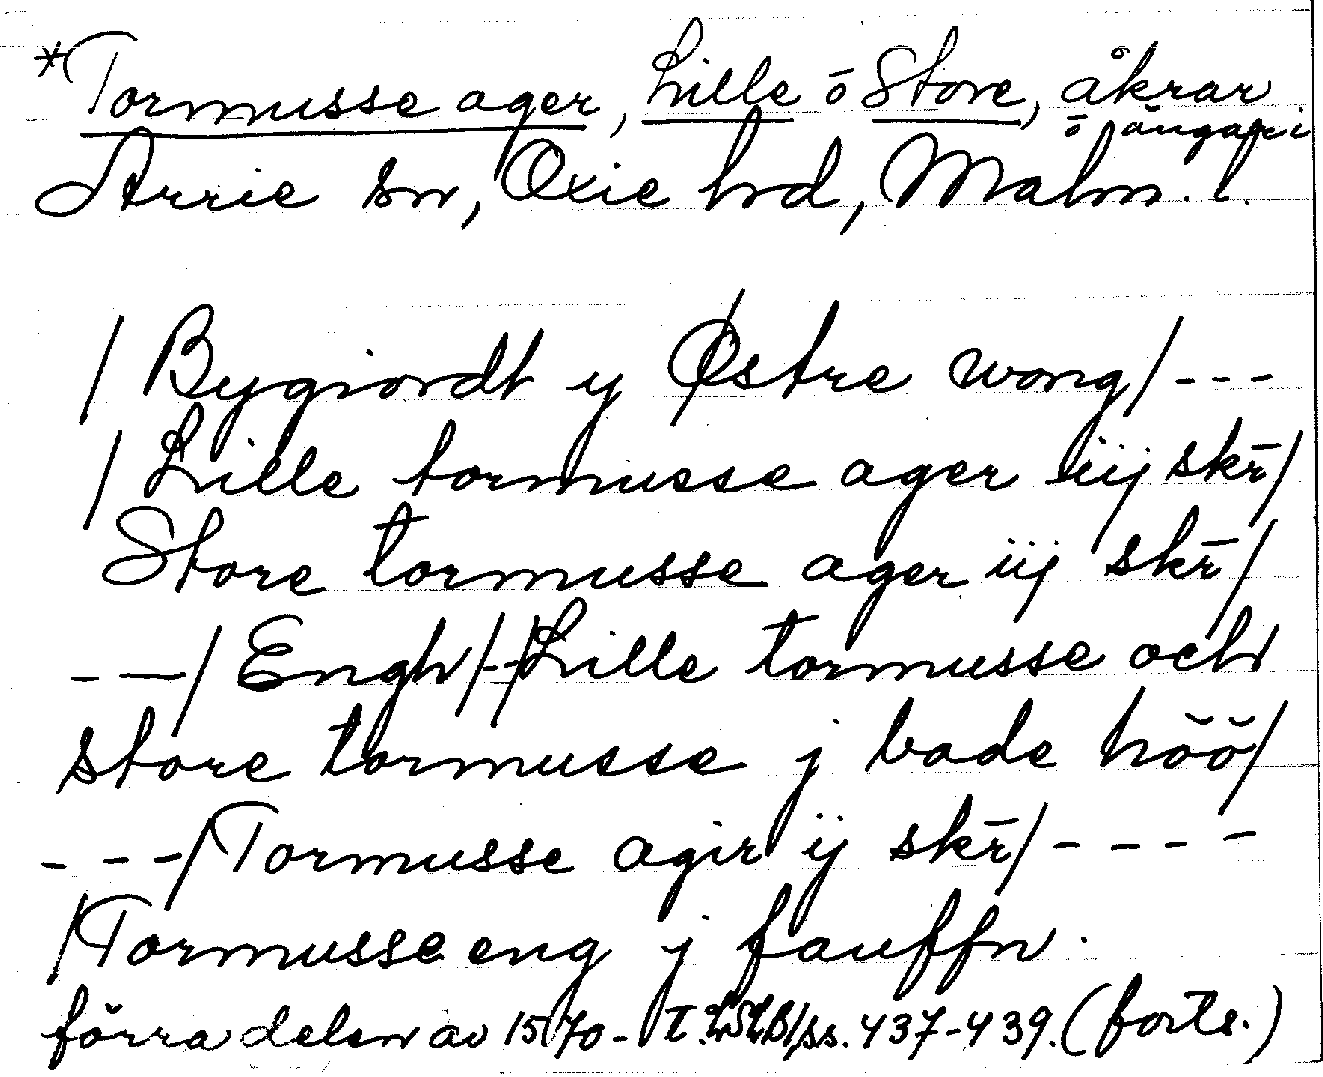 *Tormusse ager, Lille ō Store, åkrar
ō ängar i
Arrie sn, Oxie hrd, Malm. l.
/ Bygiordt y Østre wong / - - -
/ Lille tormusse ager iiij skr̄ /
Store tormusse ager iij skr̄ /
- — / Engh / - - / Lille tormusse och
store tormusse j bade höö /
- - - / Tormusse agir ij skr̄ / - - - -
/ Tormusse eng j fauffn.
förra delen av 1570- t. ss. 437-439. (forts.)